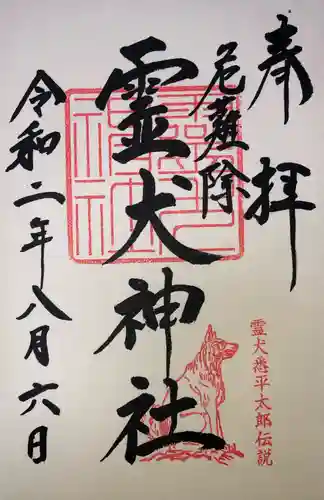 奉拝
厄難除
霊犬神社
令和二年八月六日
霊犬悉平太郎伝説